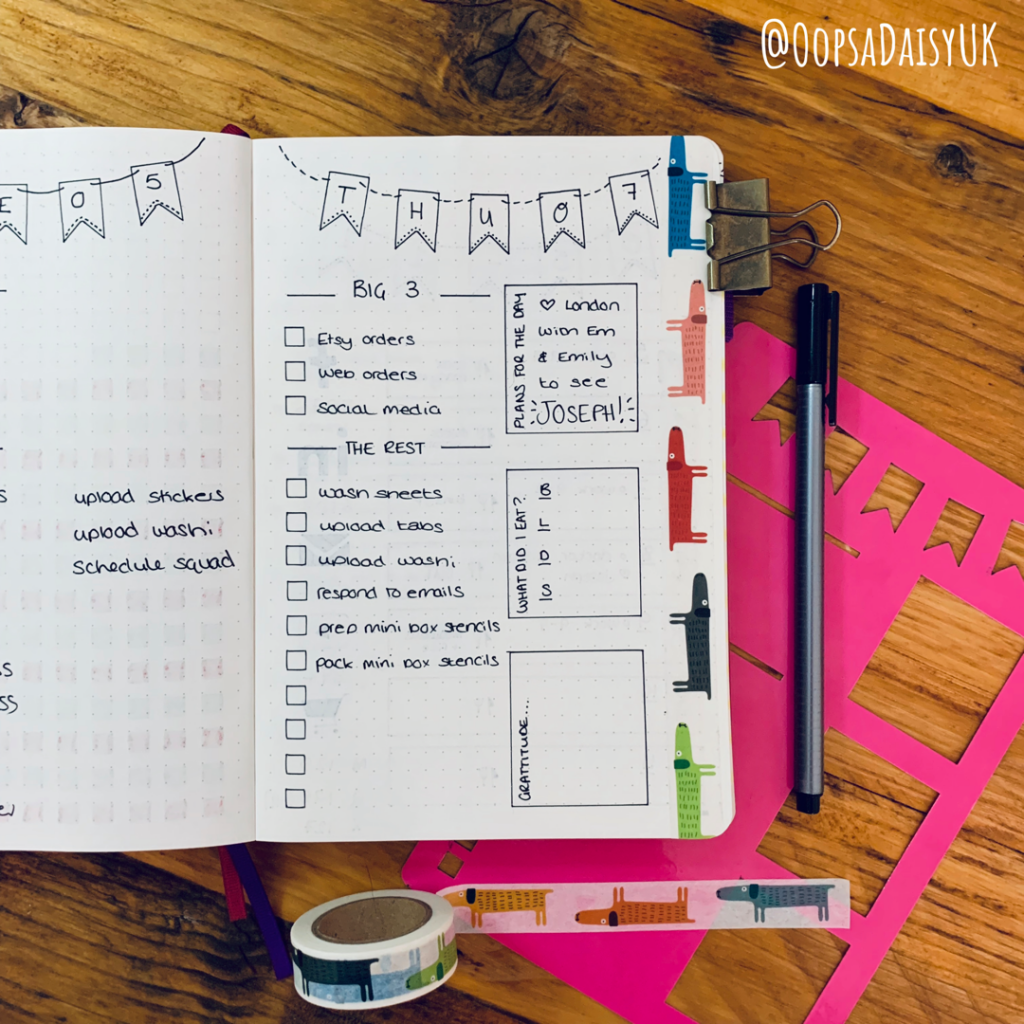 @OopsaDaisyUK
E 0 5
upload stickers
upload washi
schedule squad
THU 07
BIG 3
Etsy orders
web orders
social media
THE REST
wash sheets
upload tabs
upload washi
respond to emails
prep mini box stencils
pack mini box stencils
PLANS FOR THE DAY
♡ London
with Em
& Emily
to see
JOSEPH!
WHAT DID I EAT?
B
L
D
S
GRATITUDE...